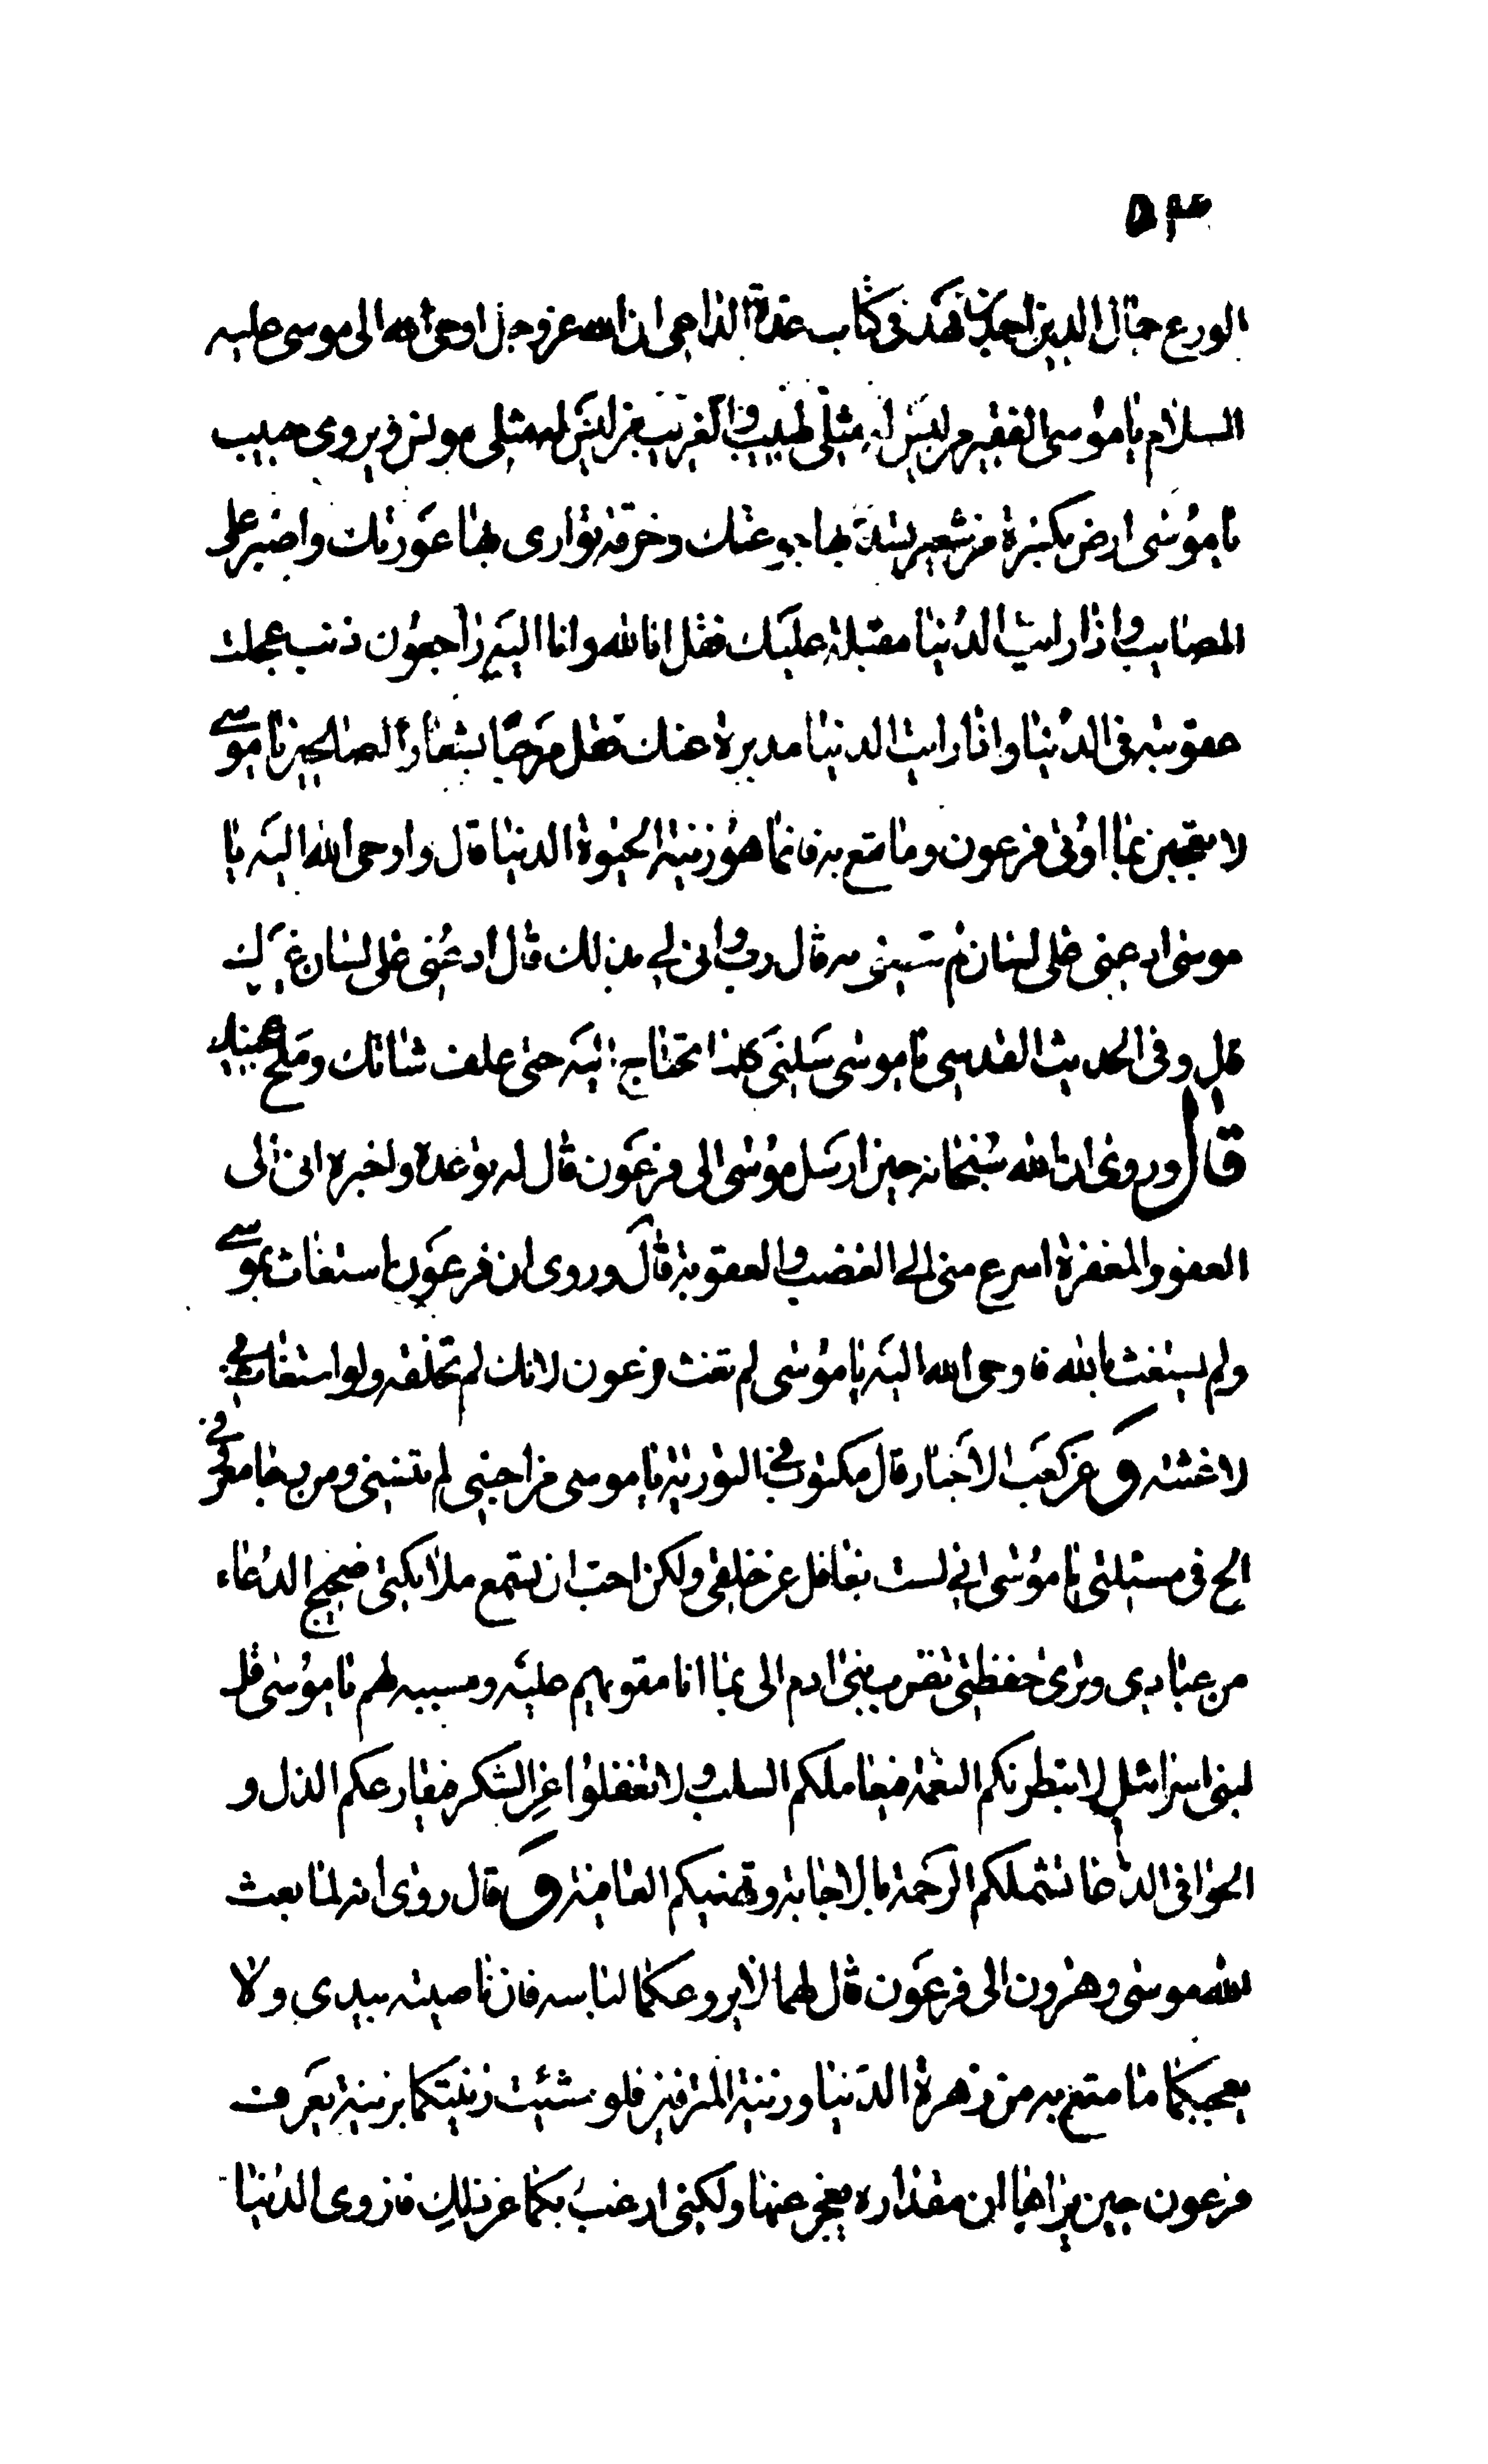 ٥٣
الورع جمال الدين احمد بن فهد في كتاب عدة الداعي ان الله عز وجل اوحى الله الى موسى عليه
السلام يا موسى الفقير من ليس له مثلي طبيب والغريب من ليس له مثلي مونس ويروى حبيب
يا موسى ارض بكسرة من شعير تسد بها جوعتك وخرقة توارى بها عورتك واصبر على
المصايب واذا رايت الدنيا مقبلة عليك فقل انا لله وانا اليه راجعون ذنب عجلت
عقوبته في الدنيا واذا رايت الدنيا مدبرة عنك فقل مرحبا بشعار الصالحين يا موسى
لا تعجبن بما اوتى فرعون وما متع به فانما هو زينة الحيوة الدنيا قال واوحى الله اليه يا
موسى ادعني على لسان لم تعصني به قال رب وانى لي بذلك قال ادعني على لسان غيرك
قال وفى الحديث القدسي يا موسى سلني كلما تحتاج اليه حتى علف شاتك وملح عجينك
قال وروى ان الله سبحانه حين ارسل موسى الى فرعون قال له توعده واخبره انى الى
العفو والمغفرة اسرع منى الى الغضب والعقوبة قال وروى ان فرعون استغاث بموسى
ولم يستغث بالله فاوحى الله اليه يا موسى لم تغث فرعون لانك لم تخلقه ولو استغاث بي
لاغثته و عن كعب الاحبار قال مكتوب في التورية يا موسى من احبني لم ينسني ومن رجا معروفي
الح في مسئلتي يا موسى انى لست بغافل عن خلقي ولكن احب ان تسمع ملائكتي ضجيج الدعاء
من عبادي وترى حفظتي تقرب بنى ادم الى بما انا مقويهم عليه ومسببه لهم يا موسى قل
لبنى اسرائيل لا تبطرنكم النعمة فيعاملكم السلب ولا تغفلوا عن الشكر فيقارعكم الذل و
الحوا في الدعا تشملكم الرحمة بالاجابة وتهنيكم العافية و قال روى انه لما بعث
الله موسى وهرون الى فرعون قال لهما لا يروعكما لباسه فان ناصيته بيدى ولا
يعجبكما ما متع به من زهرة الدنيا وزينة المترفين فلو شئت زينتكما بزينة يعرف
فرعون حين يراها ان مقداره يعجز عنها ولكنى ارغب بكما عن ذلك فازوى الدنيا